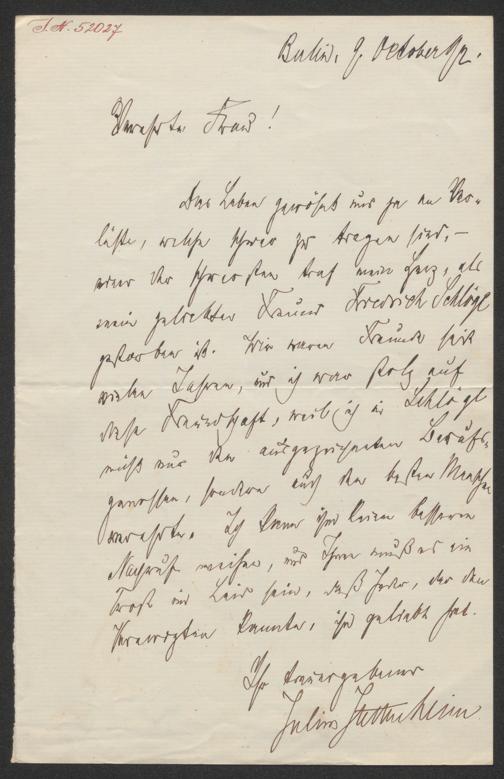 J.N. 52027
Berlin, 9. October 92.
Verehrte Frau!
Das Leben gewöhnt uns ja an Ver-
luste, welche schwer zu tragen sind, –
einer der schwersten traf mein Herz, als
mein geliebter Freund Friedrich Schlögl
gestorben ist. Wir waren Freunde seit
vielen Jahren, und ich war stolz auf
diese Freundschaft, weil ich in Schlögl
nicht nur den ausgezeichneten Berufs-
genossen, sondern auch den besten Menschen
verehrte. Ich kann ihm keinen besseren
Nachruf weihen, und Ihnen muß es ein
Trost im Leid sein, daß Jeder, der den
Verewigten kannte, ihn geliebt hat.
Ihr treuergebener
Julius Stettenheim